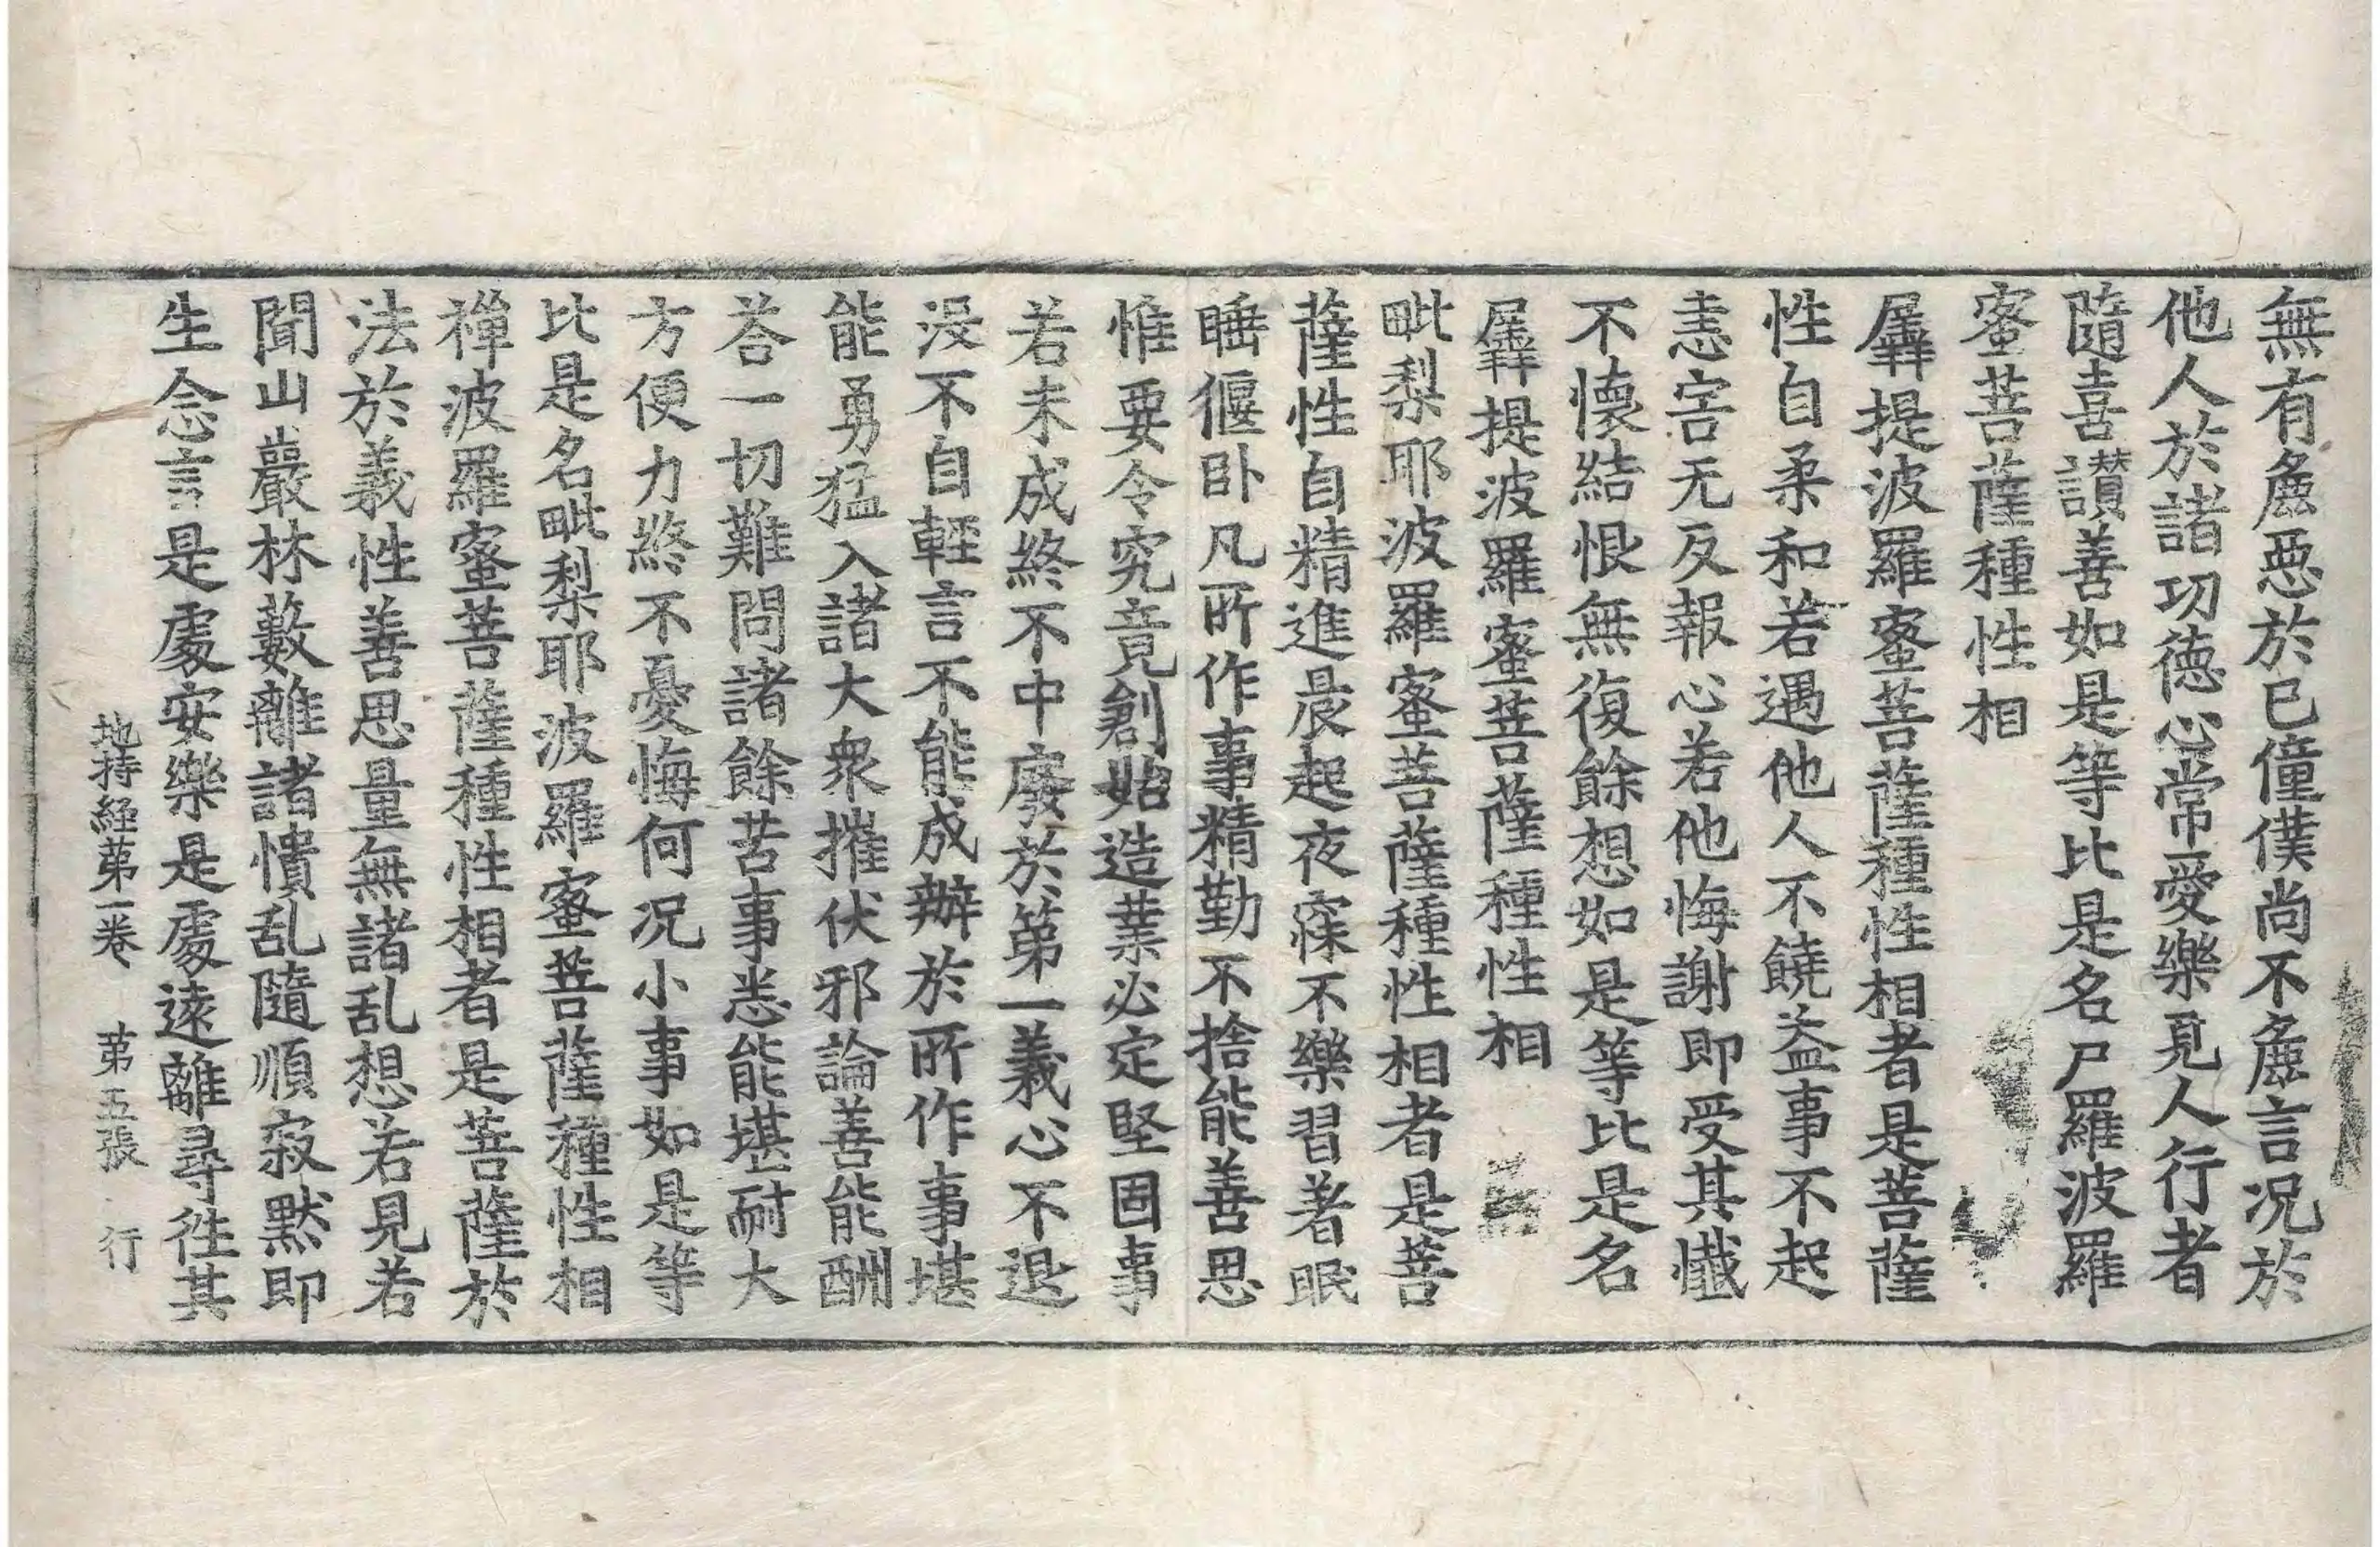 無有麁惡於已僮僕尚不麁言况於
他人於諸功德心常愛樂見人行者
隨喜讃善如是等比是名尸羅波羅
蜜菩薩種性相
羼提波羅蜜菩薩種性相者是菩薩
性自柔和若遇他人不饒益事不起
恚害无反報心若他悔謝即受其懺
不懷結恨無復餘想如是等比是名
羼提波羅蜜菩薩種性相
毗梨耶波羅蜜菩薩種性相者是菩
薩性自精進晨起夜寐不樂習著眠
睡偃卧凡所作事精勤不捨能善思
惟要令究竟創始造業必定堅固事
若未成終不中廢於第一義心不退
没不自輕言不能成辦於所作事堪
能勇猛入諸大衆摧伏邪論善能酬
荅一切難問諸餘苦事悉能堪耐大
方便力終不憂悔何况小事如是等
比是名毗梨耶波羅蜜菩薩種性相
禅波羅蜜菩薩種性相者是菩薩於
法於義性善思量無諸乱想若見若
聞山巖林藪離諸憒乱隨順寂默即
生念言是處安樂是處遠離尋徃其
地持経苐一卷 苐五張 行